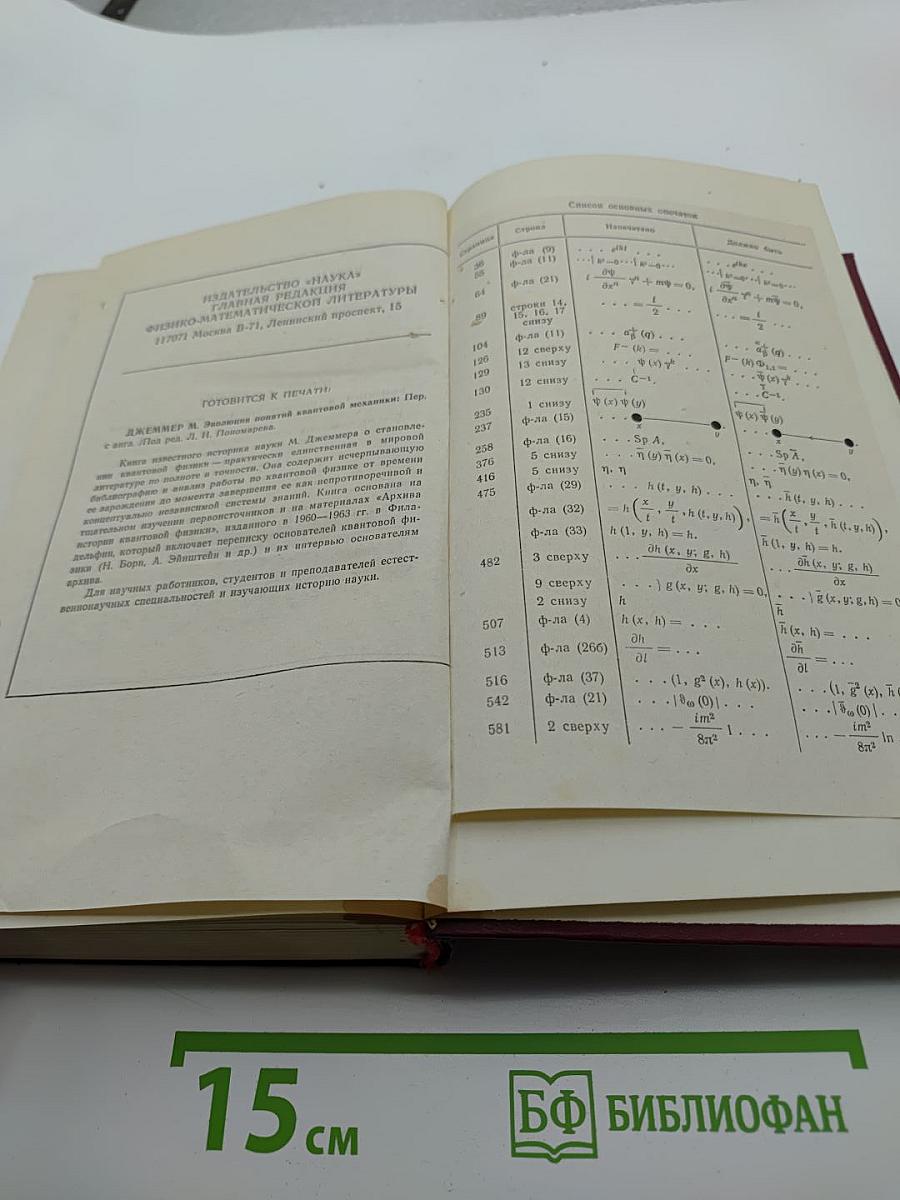 ИЗДАТЕЛЬСТВО «НАУКА»
ГЛАВНАЯ РЕДАКЦИЯ
ФИЗИКО-МАТЕМАТИЧЕСКОЙ ЛИТЕРАТУРЫ
117071 Москва В-71, Ленинский проспект, 15
ГОТОВИТСЯ К ПЕЧАТИ:
ДЖЕММЕР М. Эволюция понятий квантовой механики: Пер.
с англ. /Под ред. Л. И. Пономарева.
Книга известного историка науки М. Джеммера о становле-
нии квантовой физики — практически единственная в мировой
литературе по полноте и точности. Она содержит исчерпывающую
библиографию и анализ работы по квантовой физике от времени
ее зарождения до момента завершения ее как непротиворечивой и
концептуально независимой системы знаний. Книга основана на
тщательном изучении первоисточников и на материалах «Архива
истории квантовой физики», изданного в 1960—1963 гг. в Фила-
дельфии, который включает переписку основателей квантовой фи-
зики (Н. Борн, А. Эйнштейн и др.) и их интервью основателям
архива.
Для научных работников, студентов и преподавателей естест-
веннонаучных специальностей и изучающих историю науки.
Список основных опечаток
Страница Строка Напечатано Должно быть
36 ф-ла (9)
55 ф-ла (11)
64 ф-ла (21) i ∂ψ/∂xⁿ γⁿ + mψ = 0, i ∂ψ̄/∂xⁿ γⁿ + mψ̄ = 0,
89 строки 14, 15, 16, 17 снизу . . . = i/2 . . . . . . = i/2 . . .
104 ф-ла (11)
126 12 сверху F⁻ (k) = . . .
129 13 снизу . . . ψ (x) γᵏ . . . . . . ψ̄ (x) γᵏ . . .
130 12 снизу . . . C⁻¹, . . . C⁻¹,
235 1 снизу ψ (x) ψ (y) ψ (x) ψ̄ (y)
237 ф-ла (15) . . . x y . . . x y
258 ф-ла (16) . . . Sp A, . . . Sp Ā,
376 5 снизу . . . η̄ (y) η̄ (x) = 0, . . . η̄ (y) η (x) = 0,
416 5 снизу η, η η, η̄
475 ф-ла (29) . . . h (t, y, h) . . . . . . h̄ (t, y, h) . . .
ф-ла (32) = h (x/t, y/t, h (t, y, h)), = h̄ (x/t, y/t, h̄ (t, y, h)),
ф-ла (33) h (1, y, h) = h. h̄ (1, y, h) = h.
482 3 сверху . . . ∂h (x, y; g, h)/∂x . . . ∂h̄ (x, y; g, h)/∂x
9 сверху . . . } g (x, y; g, h) = 0, . . . } ḡ (x, y; g, h) = 0
2 снизу h h̄
507 ф-ла (4) h (x, h) = . . . h̄ (x, h) = . . .
513 ф-ла (26б) ∂h/∂l = . . . ∂h̄/∂l = . . .
516 ф-ла (37) . . . (1, g² (x), h (x)). . . . (1, ḡ² (x), h̄
542 ф-ла (21) . . . |ϑω (0)| . . . . . . |ϑ̄ω (0)| . . .
581 2 сверху . . . − im²/8π² 1 . . . . . . − im²/8π² ln
15 см
БФ БИБЛИОФАН